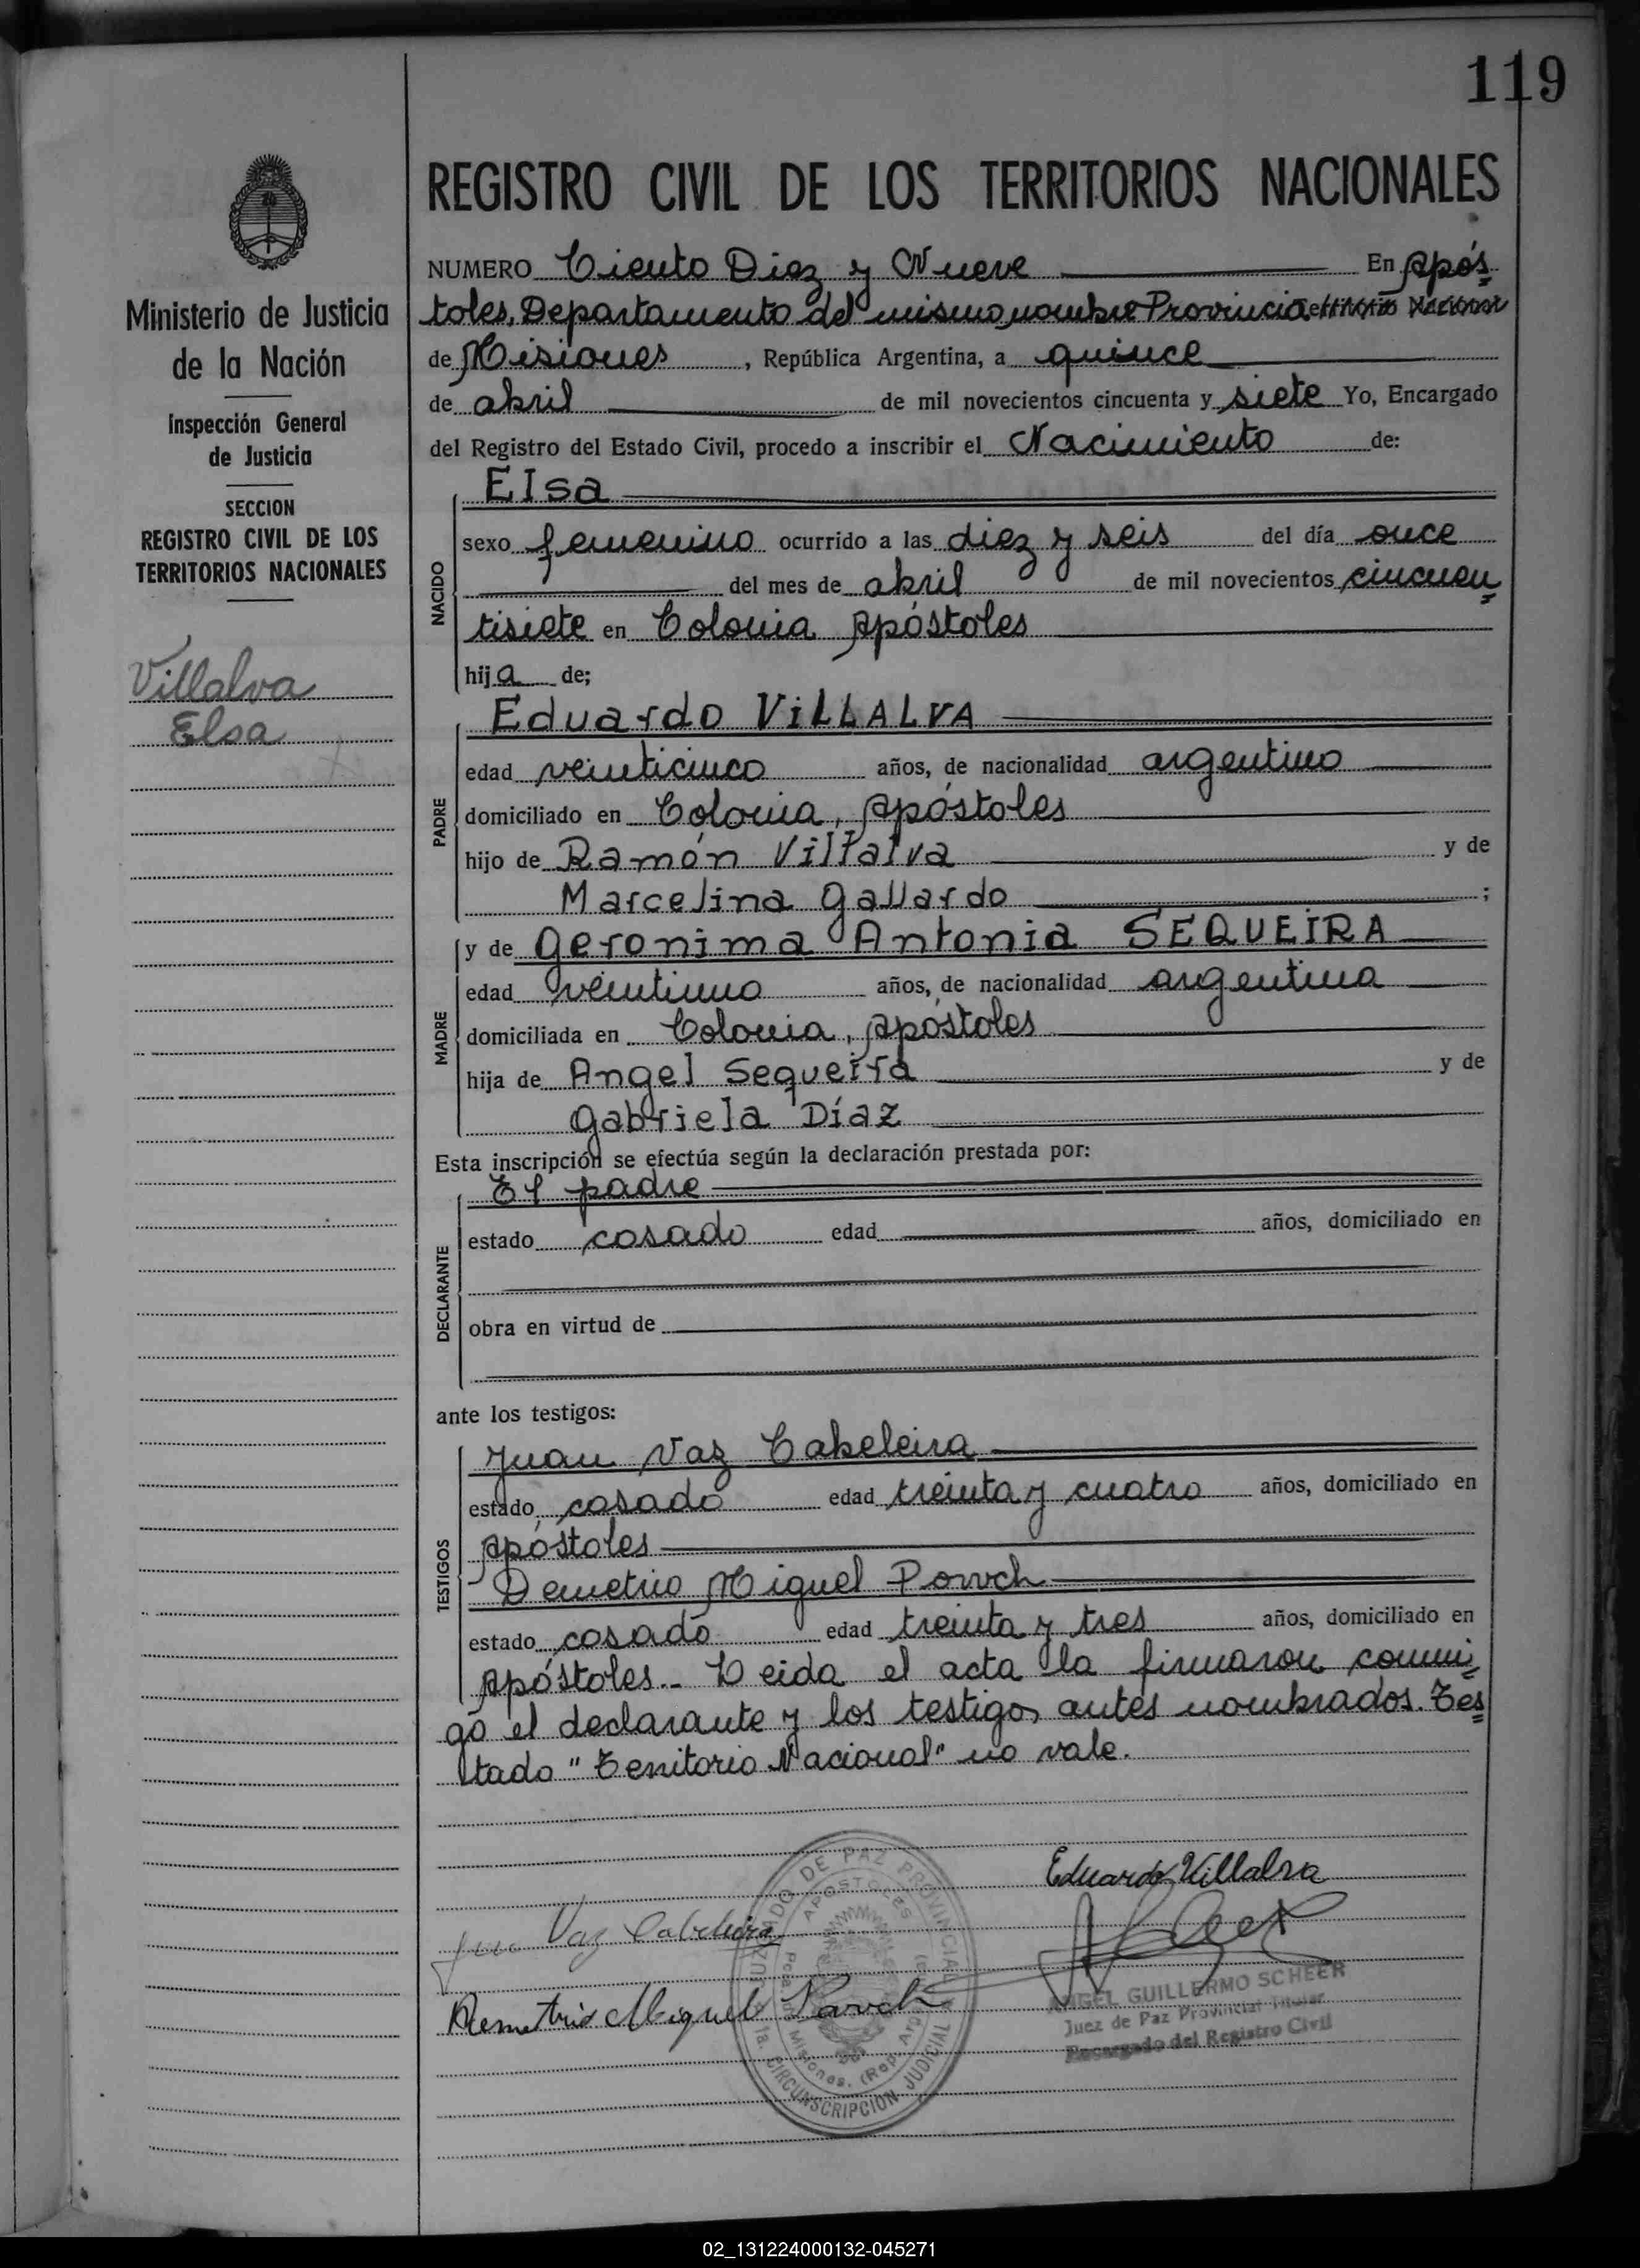 119
REGISTRO CIVIL DE LOS TERRITORIOS NACIONALES
Ministerio de Justicia
de la Nación
Inspección General
de Justicia
SECCION
REGISTRO CIVIL DE LOS
TERRITORIOS NACIONALES
Villalva
Elsa
NUMERO Ciento Diez y Nueve En Após
toles, Departamento del mismo nombre Provincia
de Misiones, República Argentina, a quince
de abril de mil novecientos cincuenta y siete Yo, Encargado
del Registro del Estado Civil, procedo a inscribir el Nacimiento de:
NACIDO
Elsa
sexo femenino ocurrido a las diez y seis del día once
del mes de abril de mil novecientos cincuen
tisiete en Colonia Apóstoles
hija de;
PADRE
Eduardo VILLALVA
edad veinticinco años, de nacionalidad argentino
domiciliado en Colonia, Apóstoles
hijo de Ramón Villalva y de
Marcelina Gallardo ;
MADRE
y de Geronima Antonia SEQUEIRA
edad veintiuno años, de nacionalidad argentina
domiciliada en Colonia, Apóstoles
hija de Angel Sequeira y de
Gabriela Díaz
Esta inscripción se efectúa según la declaración prestada por:
DECLARANTE
El padre
estado casado edad años, domiciliado en
obra en virtud de
ante los testigos:
TESTIGOS
Juan Vaz Cabeleira
estado casado edad treinta y cuatro años, domiciliado en
Apóstoles
Demetrio Miguel Powch
estado casado edad treinta y tres años, domiciliado en
Apóstoles.- Leida el acta la firmaron conmi
go el declarante y los testigos antes nombrados. Tes
tado "Territorio Nacional" no vale.
Eduardo Villalva
Vaz Cabeleira
Demetrio Miguel
JUZGADO DE PAZ PROVINCIAL
APOSTOLES
Misiones. (Rep. Arg.
1a. CIRCUNSCRIPCIÓN JUDICIAL
ANGEL GUILLERMO SCHEER
Juez de Paz Provincial Titular
Encargado del Registro Civil
02_131224000132-045271